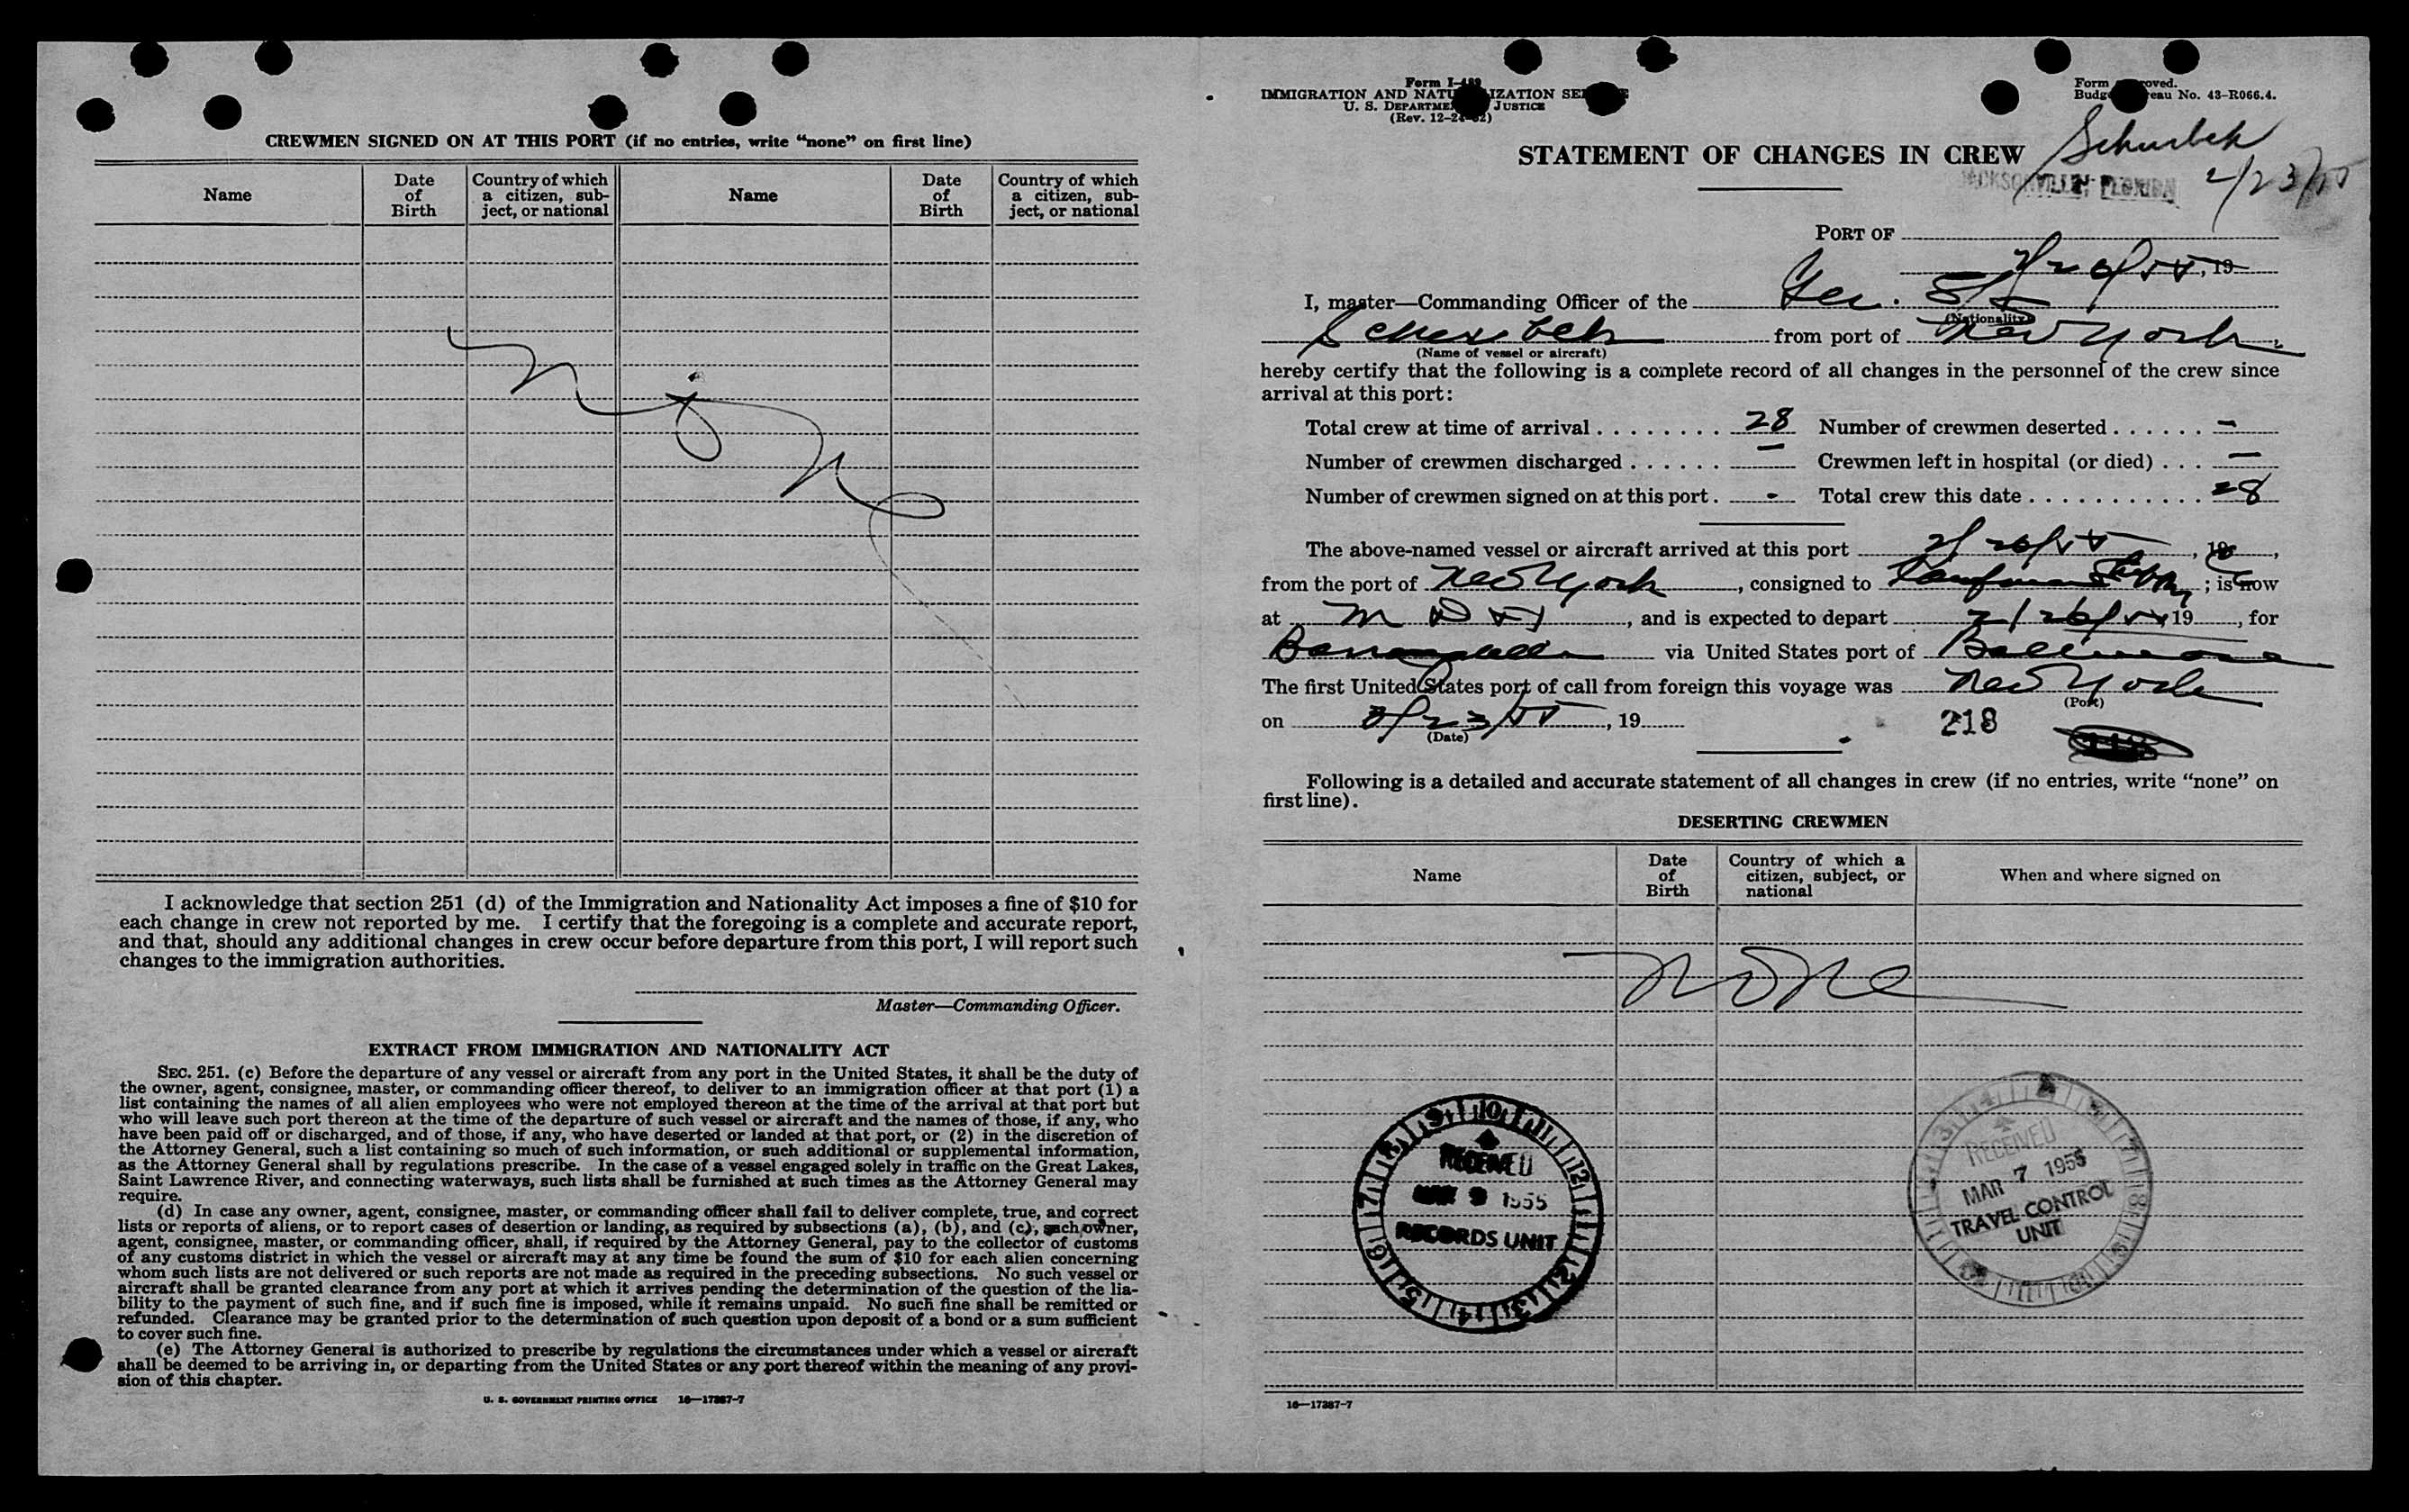 CREWMEN SIGNED ON AT THIS PORT (if no entries, write “none” on first line)
Name
Date of Birth
Country of which a citizen, subject, or national
Name
Date of Birth
Country of which a citizen, subject, or national
I acknowledge that section 251 (d) of the Immigration and Nationality Act imposes a fine of $10 for
each change in crew not reported by me. I certify that the foregoing is a complete and accurate report,
and that, should any additional changes in crew occur before departure from this port, I will report such
changes to the immigration authorities.
Master—Commanding Officer.
EXTRACT FROM IMMIGRATION AND NATIONALITY ACT
SEC. 251. (c) Before the departure of any vessel or aircraft from any port in the United States, it shall be the duty of
the owner, agent, consignee, master, or commanding officer thereof, to deliver to an immigration officer at that port (1) a
list containing the names of all alien employees who were not employed thereon at the time of the arrival at that port but
who will leave such port thereon at the time of the departure of such vessel or aircraft and the names of those, if any, who
have been paid off or discharged, and of those, if any, who have deserted or landed at that port, or (2) in the discretion of
the Attorney General, such a list containing so much of such information, or such additional or supplemental information,
as the Attorney General shall by regulations prescribe. In the case of a vessel engaged solely in traffic on the Great Lakes,
Saint Lawrence River, and connecting waterways, such lists shall be furnished at such times as the Attorney General may
require.
(d) In case any owner, agent, consignee, master, or commanding officer shall fail to deliver complete, true, and correct
lists or reports of aliens, or to report cases of desertion or landing, as required by subsections (a), (b), and (c), such owner,
agent, consignee, master, or commanding officer, shall, if required by the Attorney General, pay to the collector of customs
of any customs district in which the vessel or aircraft may at any time be found the sum of $10 for each alien concerning
whom such lists are not delivered or such reports are not made as required in the preceding subsections. No such vessel or
aircraft shall be granted clearance from any port at which it arrives pending the determination of the question of the lia-
bility to the payment of such fine, and if such fine is imposed, while it remains unpaid. No such fine shall be remitted or
refunded. Clearance may be granted prior to the determination of such question upon deposit of a bond or a sum sufficient
to cover such fine.
(e) The Attorney General is authorized to prescribe by regulations the circumstances under which a vessel or aircraft
shall be deemed to be arriving in, or departing from the United States or any port thereof within the meaning of any provi-
sion of this chapter.
U. S. GOVERNMENT PRINTING OFFICE 16—17387-7
Form
IMMIGRATION AND
U. S. JUSTICE
(Rev.
Form
No. 43-R066.4.
STATEMENT OF CHANGES IN CREW
JACKSONVILLE, FLORIDA
2/23/55
PORT OF
, 19
I, master—Commanding Officer of the Ger. S/S
(Nationality)
from port of New York
(Name of vessel or aircraft)
hereby certify that the following is a complete record of all changes in the personnel of the crew since
arrival at this port:
Total crew at time of arrival . . . . . . . . 28 Number of crewmen deserted . . . . . . -
Number of crewmen discharged . . . . . . — Crewmen left in hospital (or died) . . . —
Number of crewmen signed on at this port . - Total crew this date . . . . . . . . . . . 28
The above-named vessel or aircraft arrived at this port 2/26/55 , 19 ,
from the port of New York , consigned to ; is now
at , and is expected to depart 2/26/55 19 , for
via United States port of Baltimore
The first United States port of call from foreign this voyage was New York
(Port)
on 2/23/55 , 19
(Date)
218
Following is a detailed and accurate statement of all changes in crew (if no entries, write “none” on
first line).
DESERTING CREWMEN
Name
Date of Birth
Country of which a citizen, subject, or national
When and where signed on
none
RECEIVED
MAR 9 1955
RECORDS UNIT
RECEIVED
MAR 7 1955
TRAVEL CONTROL
UNIT
16—17387-7